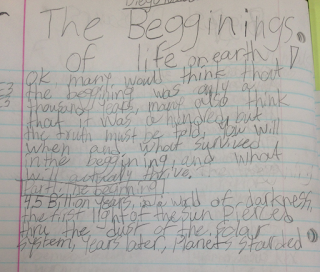 The Begginings
Of life on earth
Ok many would think that
the beggining was only a
thousand years, many also think
that it was a hundred but
the truth must be told, how will
when and, what survived
in the beggining, and what
will actually thrive.
the beginning!
4.5 Billion years, in a world of darkness,
the first light of the sun pierced
thru the dust of the Solar
System, years later, Planets Started